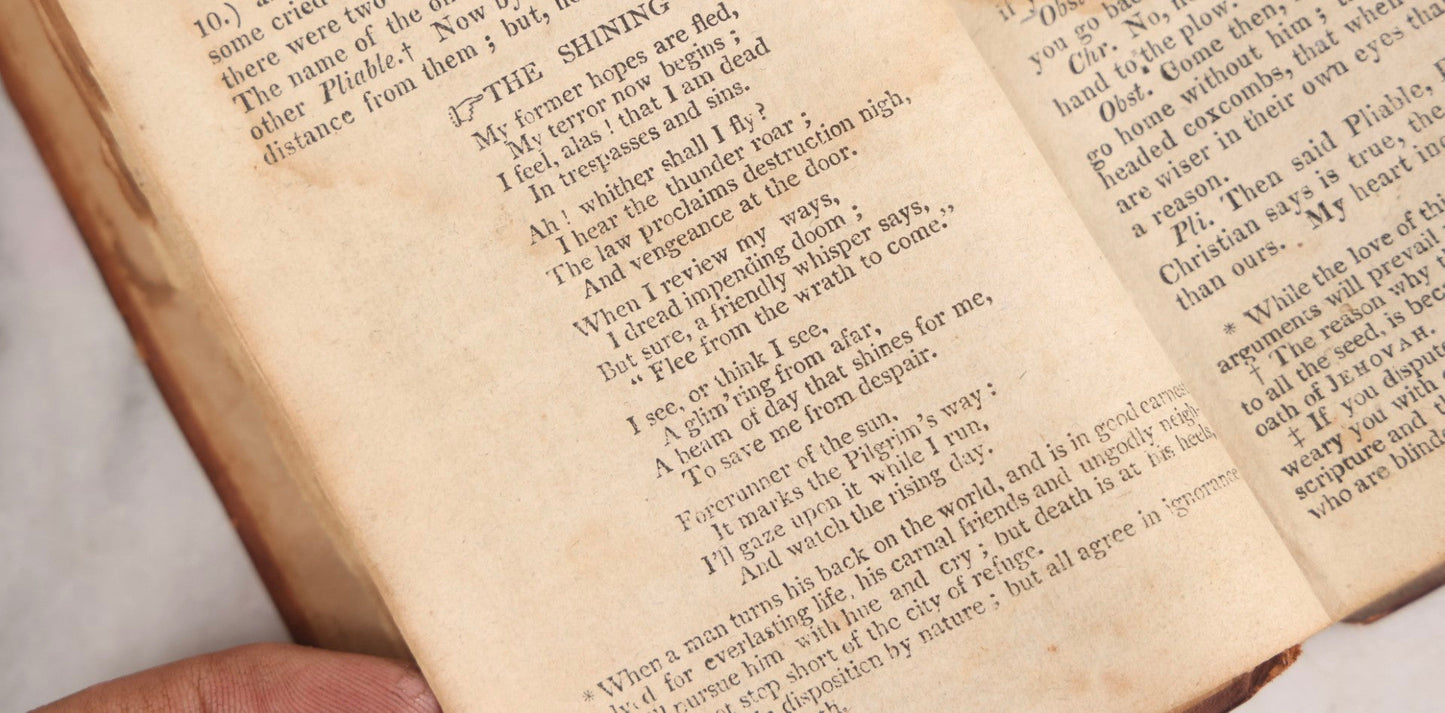 10.)
some cried
there were two
The name of the
other Pliable.† Now by
distance from them ; but,
☞THE SHINING
My former hopes are fled,
My terror now begins ;
I feel, alas ! that I am dead
In trespasses and sins.
Ah ! whither shall I fly?
I hear the thunder roar ;
The law proclaims destruction nigh,
And vengeance at the door.
When I review my ways,
I dread impending doom ;
But sure, a friendly whisper says,
“ Flee from the wrath to come.”
I see, or think I see,
A glim'ring from afar,
A beam of day that shines for me,
To save me from despair.
Forerunner of the sun,
It marks the Pilgrim's way :
I'll gaze upon it while I run,
And watch the rising day.
* When a man turns his back on the world, and is in good earnest
for everlasting life, his carnal friends and ungodly neigh-
pursue him with hue and cry ; but death is at his heels,
stop short of the city of refuge.
disposition by nature ; but all agree in ignorance
Obst.
you go back
Chr. No,
hand to the plow.
Obst. Come then,
go home without him ;
headed coxcombs, that when
are wiser in their own eyes than
a reason.
Pli. Then said Pliable,
Christian says is true, the
than ours. My heart
* While the love of this
arguments will prevail
† The reason why
to all the seed, is
oath of JEHOVAH.
‡ If you dispute
weary you with
scripture and
who are